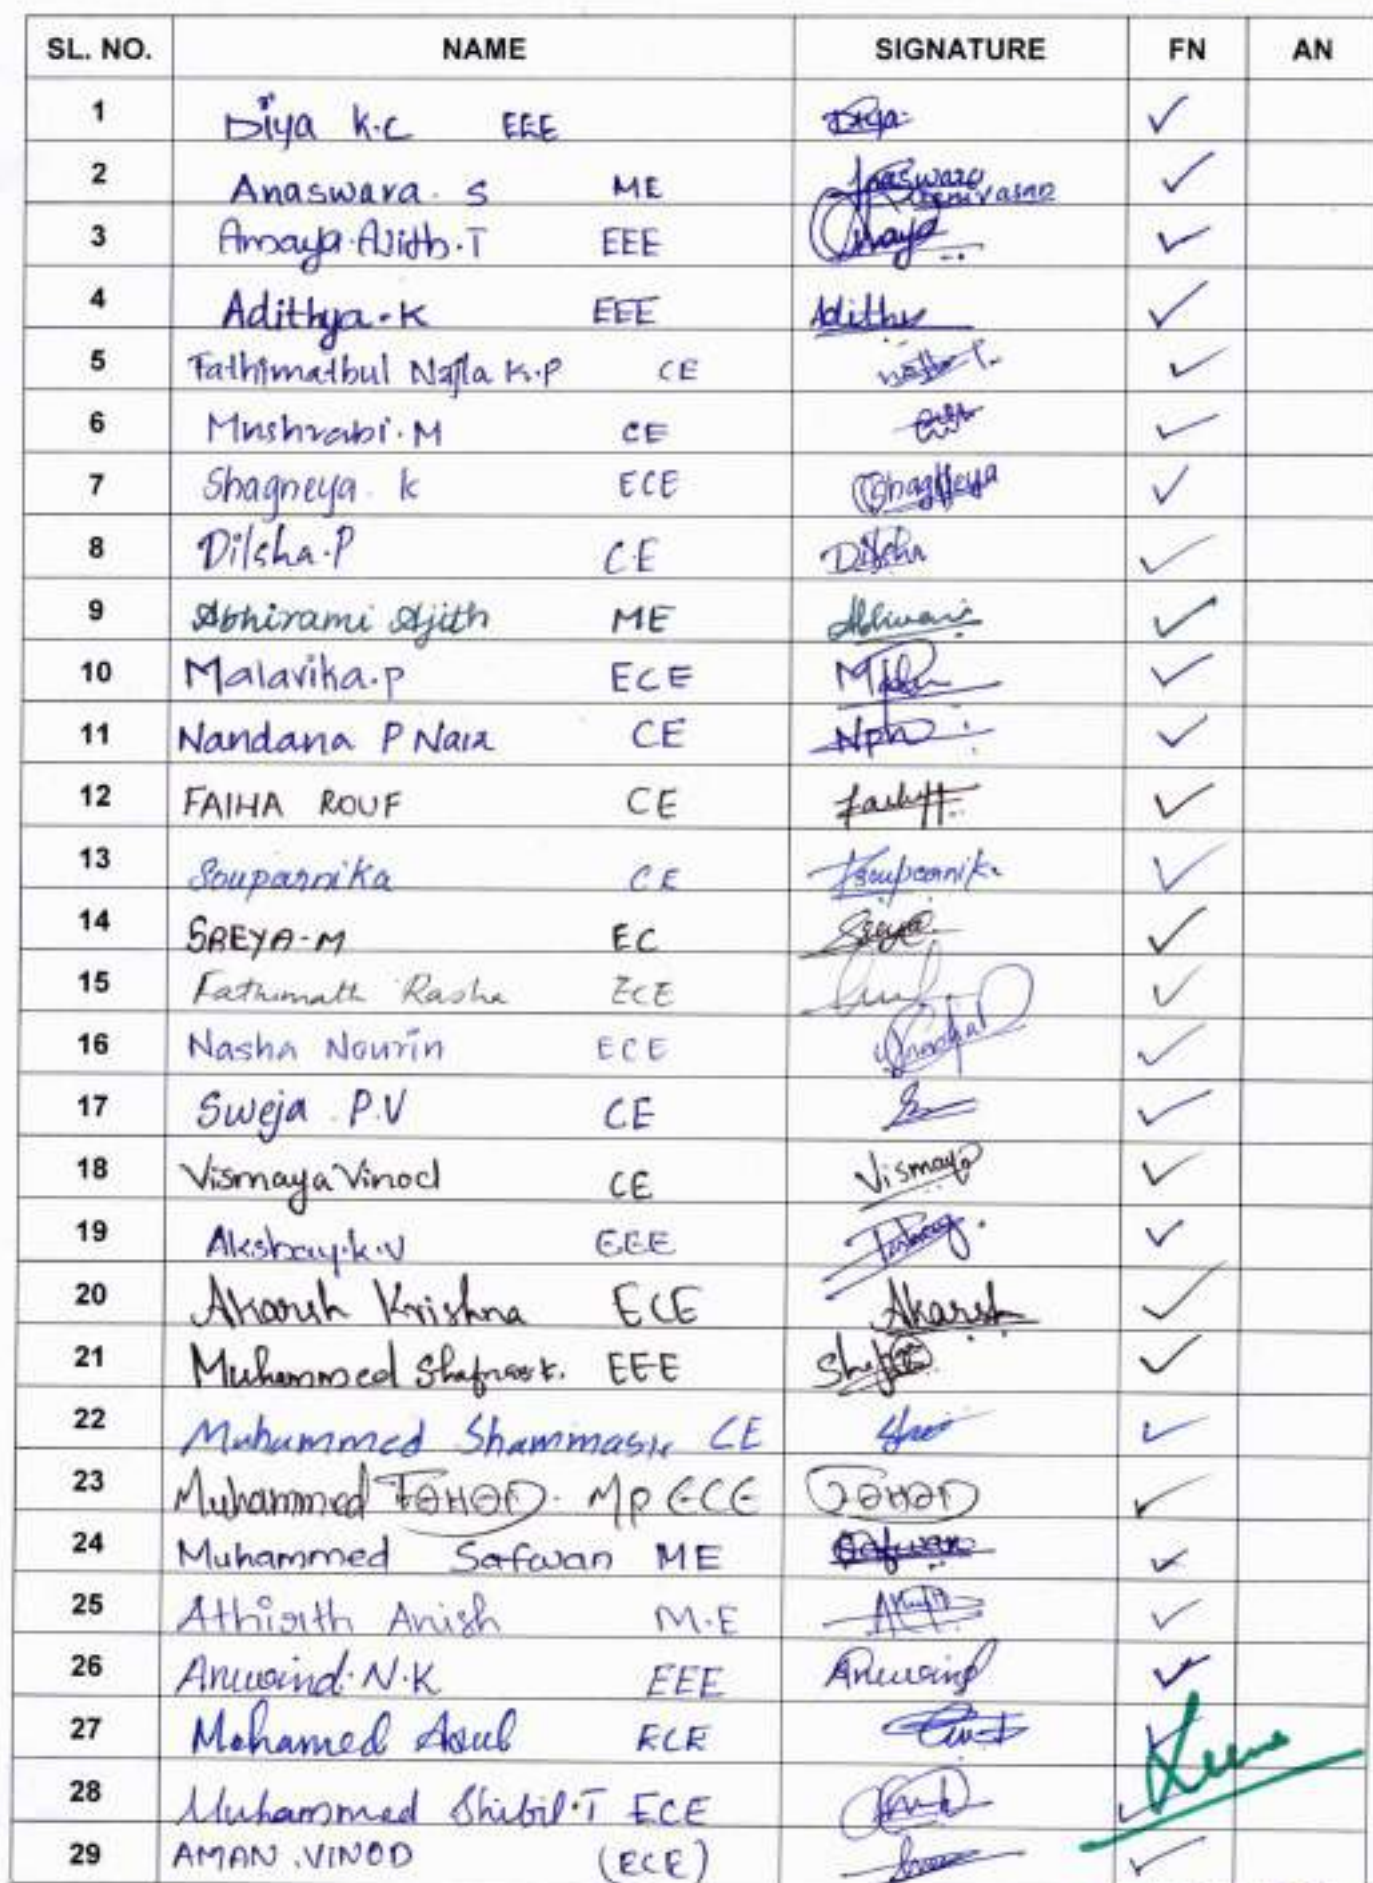 SL. NO. NAME SIGNATURE FN AN
1 Diya K.C EEE Diya ✓
2 Anaswara. S ME Anaswara Sreenivasan ✓
3 Amaya.Ajith.T EEE Amaya ✓
4 Adithya.K EEE Adithya ✓
5 Fathimathul Najla K.P CE ✓
6 Mushrabi.M CE ✓
7 Shagneya. k ECE Shagneya ✓
8 Dilsha.P C.E Dilsha ✓
9 Abhirami Ajith ME Abhirami ✓
10 Malavika.p ECE ✓
11 Nandana P Nair CE Nph ✓
12 FAIHA ROUF CE ✓
13 Souparnika CE Souparnika ✓
14 SREYA-M EC Sreya ✓
15 Fathimath Rasha ECE ✓
16 Nasha Nourin ECE ✓
17 Sweja P.V CE ✓
18 Vismaya Vinod CE Vismaya ✓
19 Akshay.k.v EEE ✓
20 Akarsh Krishna ECE Akarsh ✓
21 Muhammed EEE ✓
22 Muhammed CE ✓
23 Muhammed FAHAD. MP ECE FAHAD ✓
24 Muhammed Safwan ME Safwan ✓
25 Athirith Anish M.E ✓
26 Aruvind.N.K EEE Aruvind ✓
27 Mohamed ECE ✓
28 Muhammed Shibil.T ECE ✓
29 AMAN .VINOD (ECE) ✓